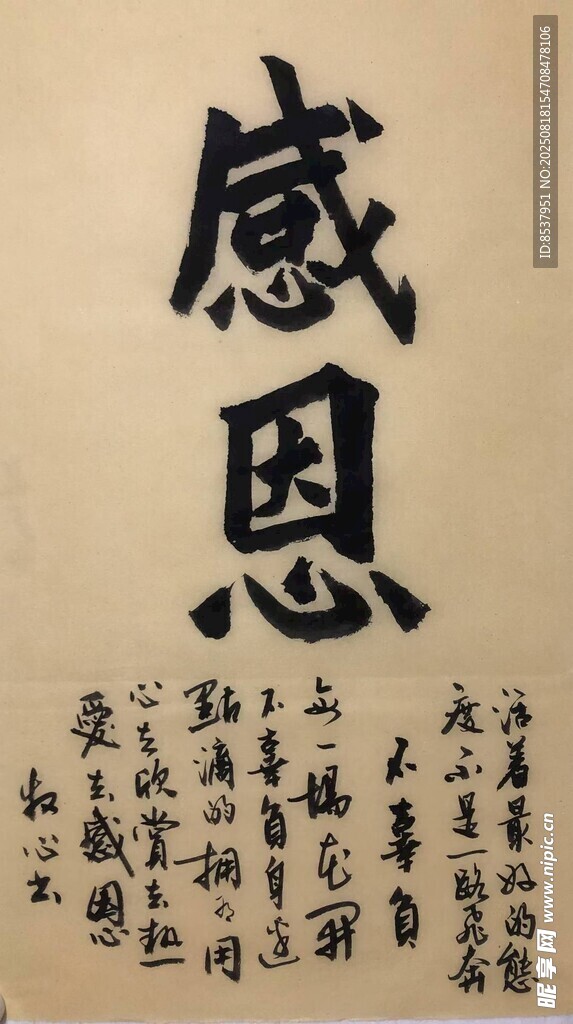 感恩
活着最好的態
度不是一路飛奔
不辜負
每一場花開
不辜負身邊
點滴的拥有用
心去欣賞去热
愛去感恩
牧心书
ID:8537951 NO:20250818154708478106
昵享网 www.nipic.cn